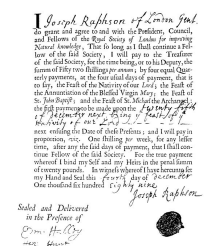 I Joseph Raphson of London Gent.
do grant and agree to and with the President, Council,
and Fellows of the Royal Society of London for improving
Natural knowledge, That so long as I shall continue a Fel-
low of the said Society, I will pay to the Treasurer
of the said Society, for the time being, or to his Deputy, the
summ of Fifty two shillings per annum; by four equal Quar-
terly payments, at the four usual days of payment, that is
to say, the Feast of the Nativity of our Lord; the Feast of the
Annunciation of the Blessed Virgin Mary; the Feast of St.
John Baptist; and the Feast of St. Michael the Archangel:
the first payment to be made upon the twenty fifth
of december next being ye feast of ye
Nativity of our Lord
next ensuing the Date of these Presents; and I will pay in
proportion, viz. One shilling per week, for any lesser
time, after any the said days of payment, that I shall con-
tinue Fellow of the said Society. For the true payment
whereof I bind my Self and my Heirs in the penal summ
of twenty pounds. In witness whereof I have hereunto set
my Hand and Seal this fourth day of december
One thousand six hundred eighty nine
Joseph Raphson
Sealed and Delivered
in the Presence of
Edm. Halley